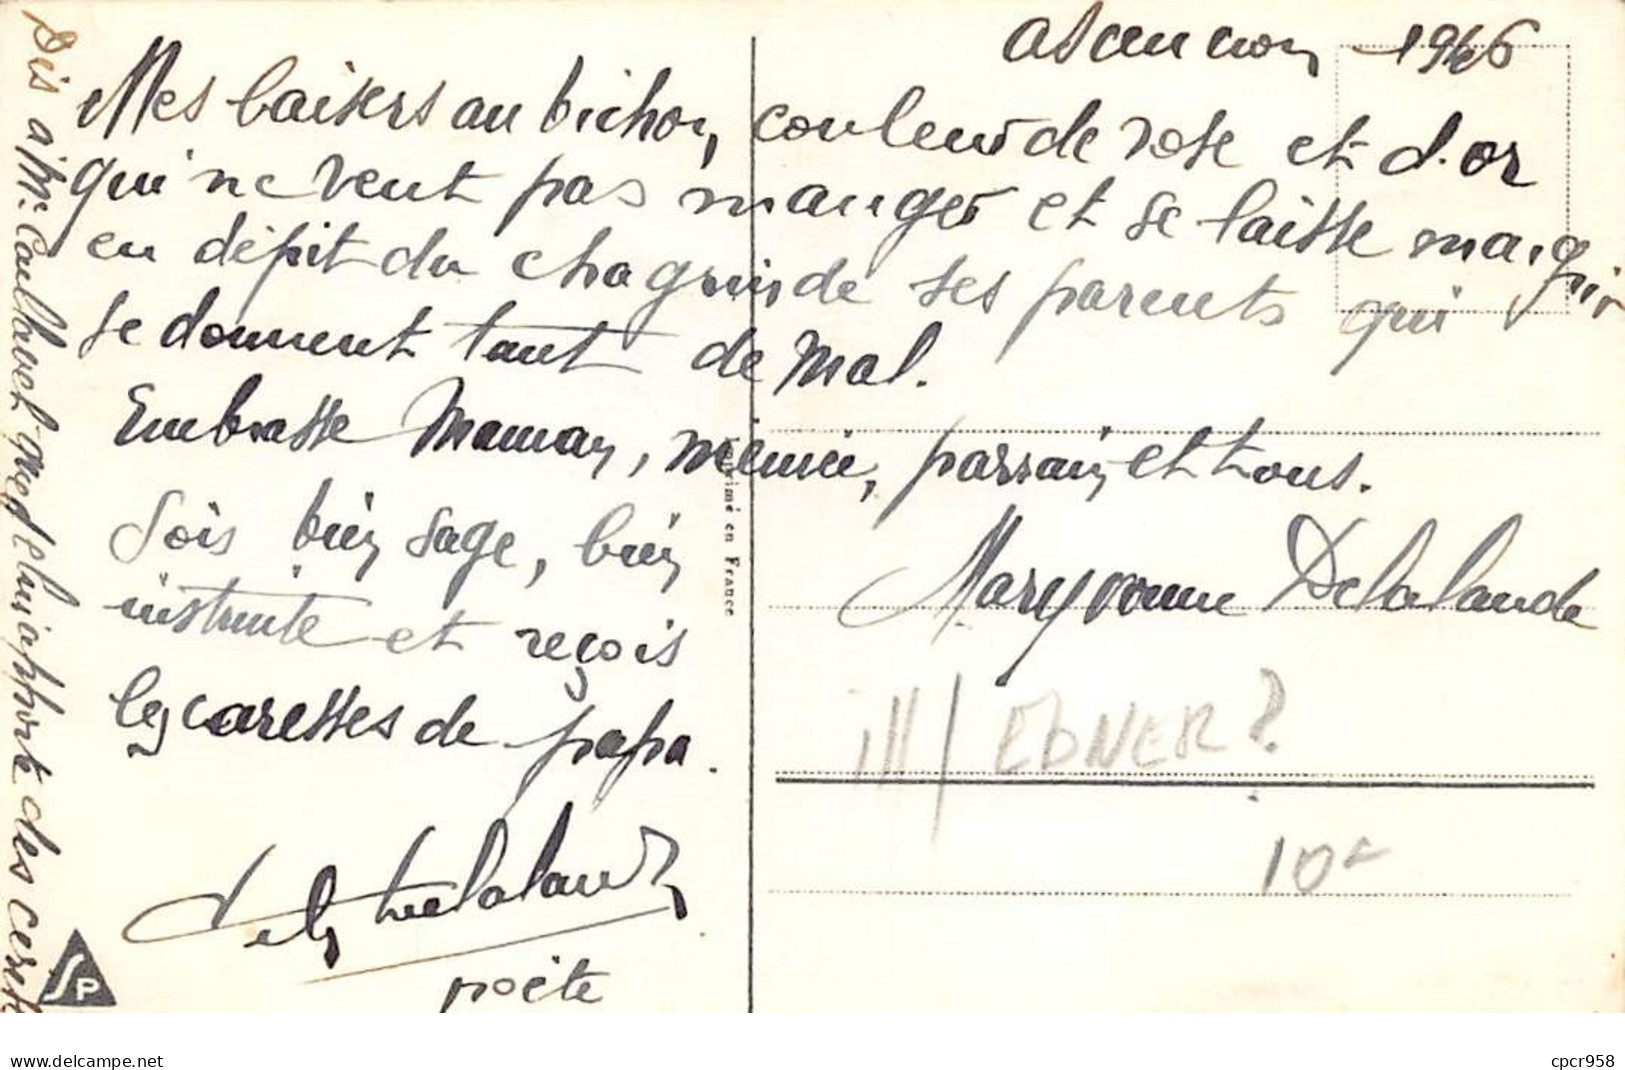 Ascension 1946
Mes baisers au bichon, couleur de rose et d'or
qui ne veut pas manger et se laisse maigrir
en dépit du chagrin de ses parents qui
se donnent tant de mal.
Embrasse Maman, mémée, parrain et tous.
Sois bien sage, bien
instruite et reçois
les caresses de papa.
Delalande
poète
Maryvonne Delalande
ill/ EBNER?
10
Dis à Mr que lui apporte des
Imprimé en France
SP
cpcr958